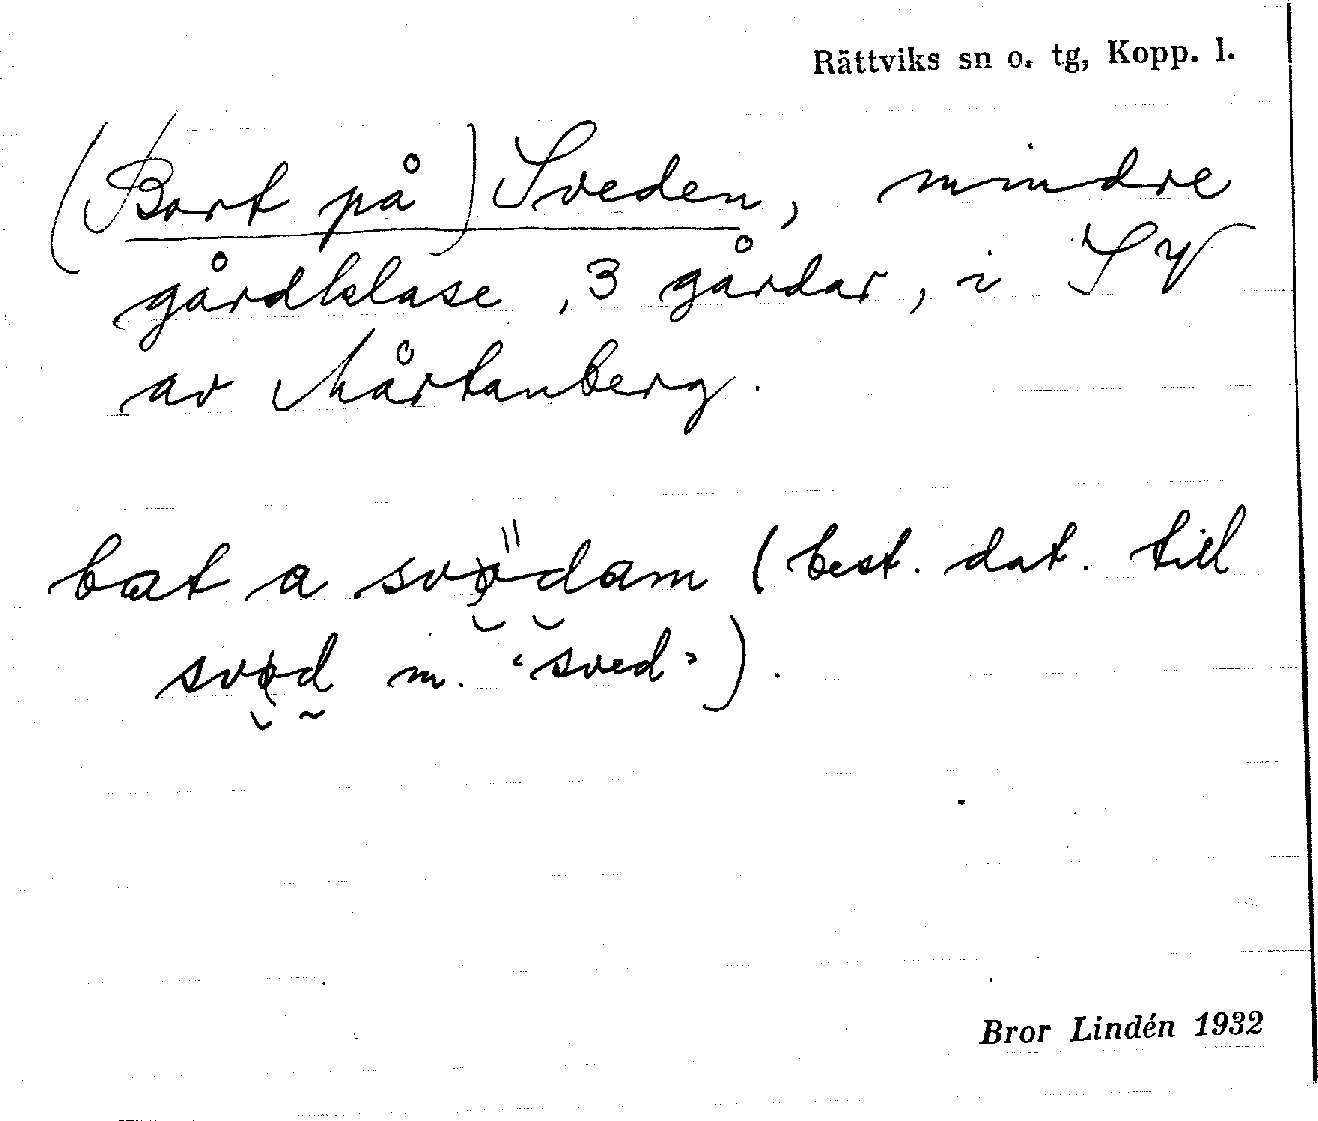 Rättviks sn o. tg, Kopp. l.
(Bort på) Sveden, mindre
gårdklase, 3 gårdar, i SV
av Mårtanberg.
bat a svødam (best. dat. till
svød m. "sved").
Bror Lindén 1932